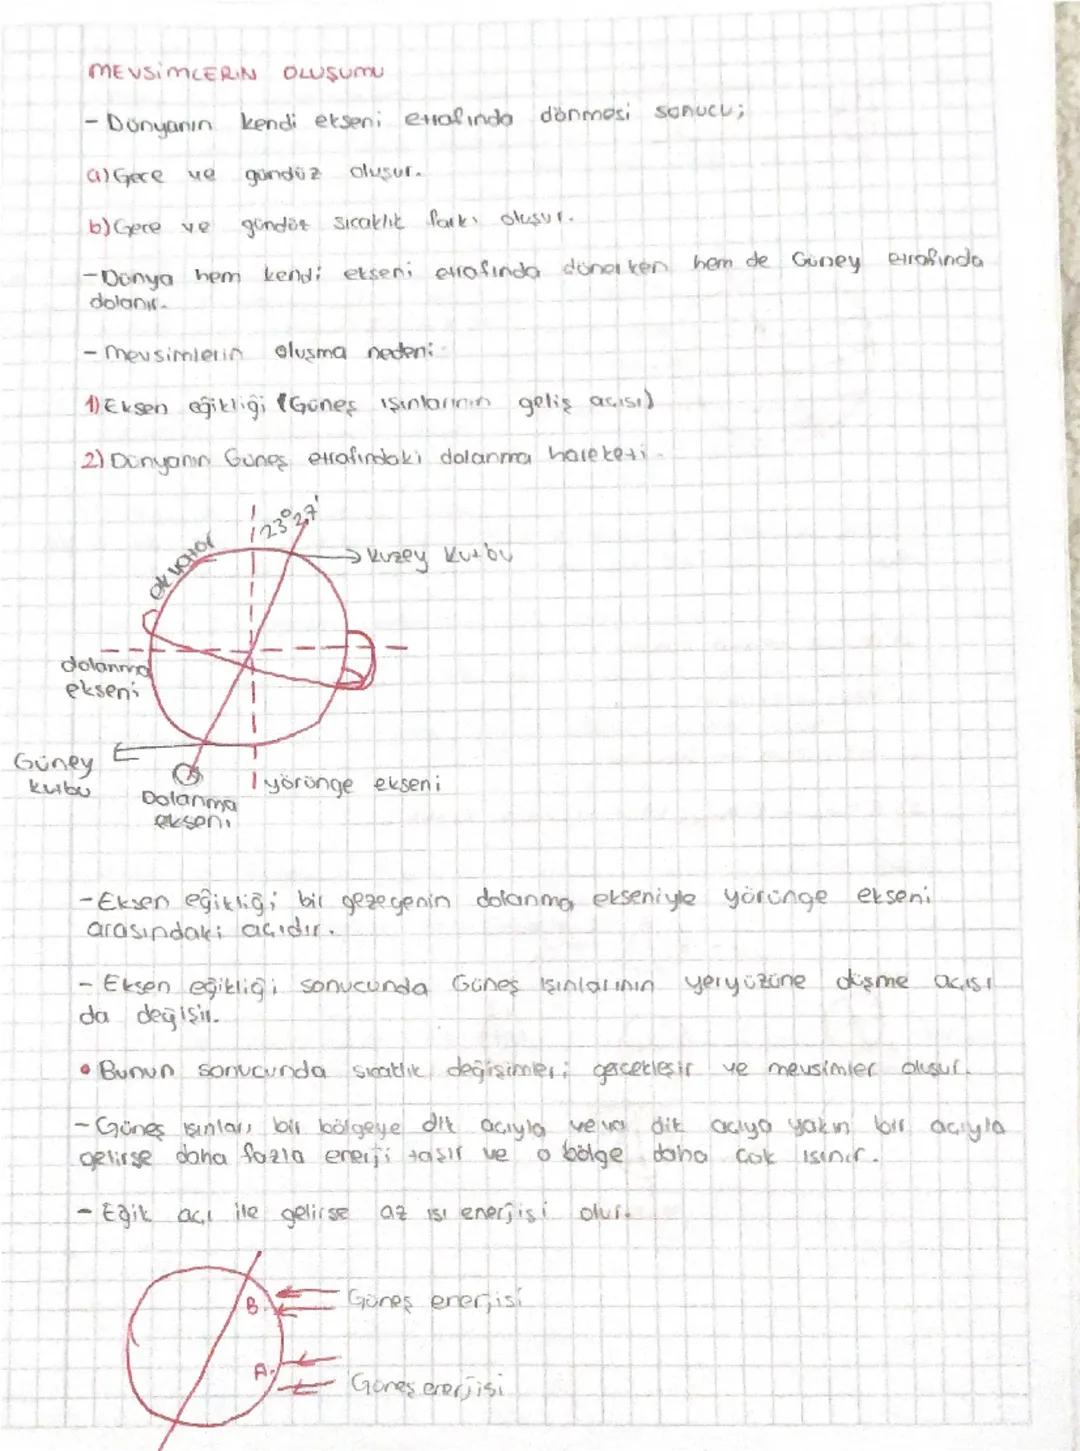 MEVSİMLERİN OLUŞUMU
- Dünyanın kendi ekseni etrafında dönmesi sonucu;
a) Gece ve gündüz oluşur.
b) Gece ve gündüz sıcaklık farkı oluşur.
- Dünya hem kendi ekseni etrafında dönerken hem de Güney etrafında
dolanır.
- Mevsimlerin oluşma nedeni
1) Eksen eğikliği (Güneş ışınlarının geliş açısı)
2) Dünyanın Güneş etrafındaki dolanma hareketi.
23° 27'
ekvator
Kuzey Kutbu
dolanma
ekseni
Güney
kutbu
Dolanma
ekseni
yörünge ekseni
- Eksen eğikliği; bir gezegenin dolanma ekseniyle yörünge ekseni
arasındaki açıdır.
- Eksen eğikliği sonucunda Güneş ışınlarının yeryüzüne düşme açısı
da değişir.
• Bunun sonucunda sıcaklık değişimleri gerçekleşir ve mevsimler oluşur.
- Güneş ışınları bir bölgeye dik açıyla veya dik açıya yakın bir açıyla
gelirse daha fazla enerji taşır ve o bölge daha çok ısınır.
- Eğik açı ile gelirse az ısı enerjisi olur.
B
Güneş enerjisi
A
Güneş enerjisi